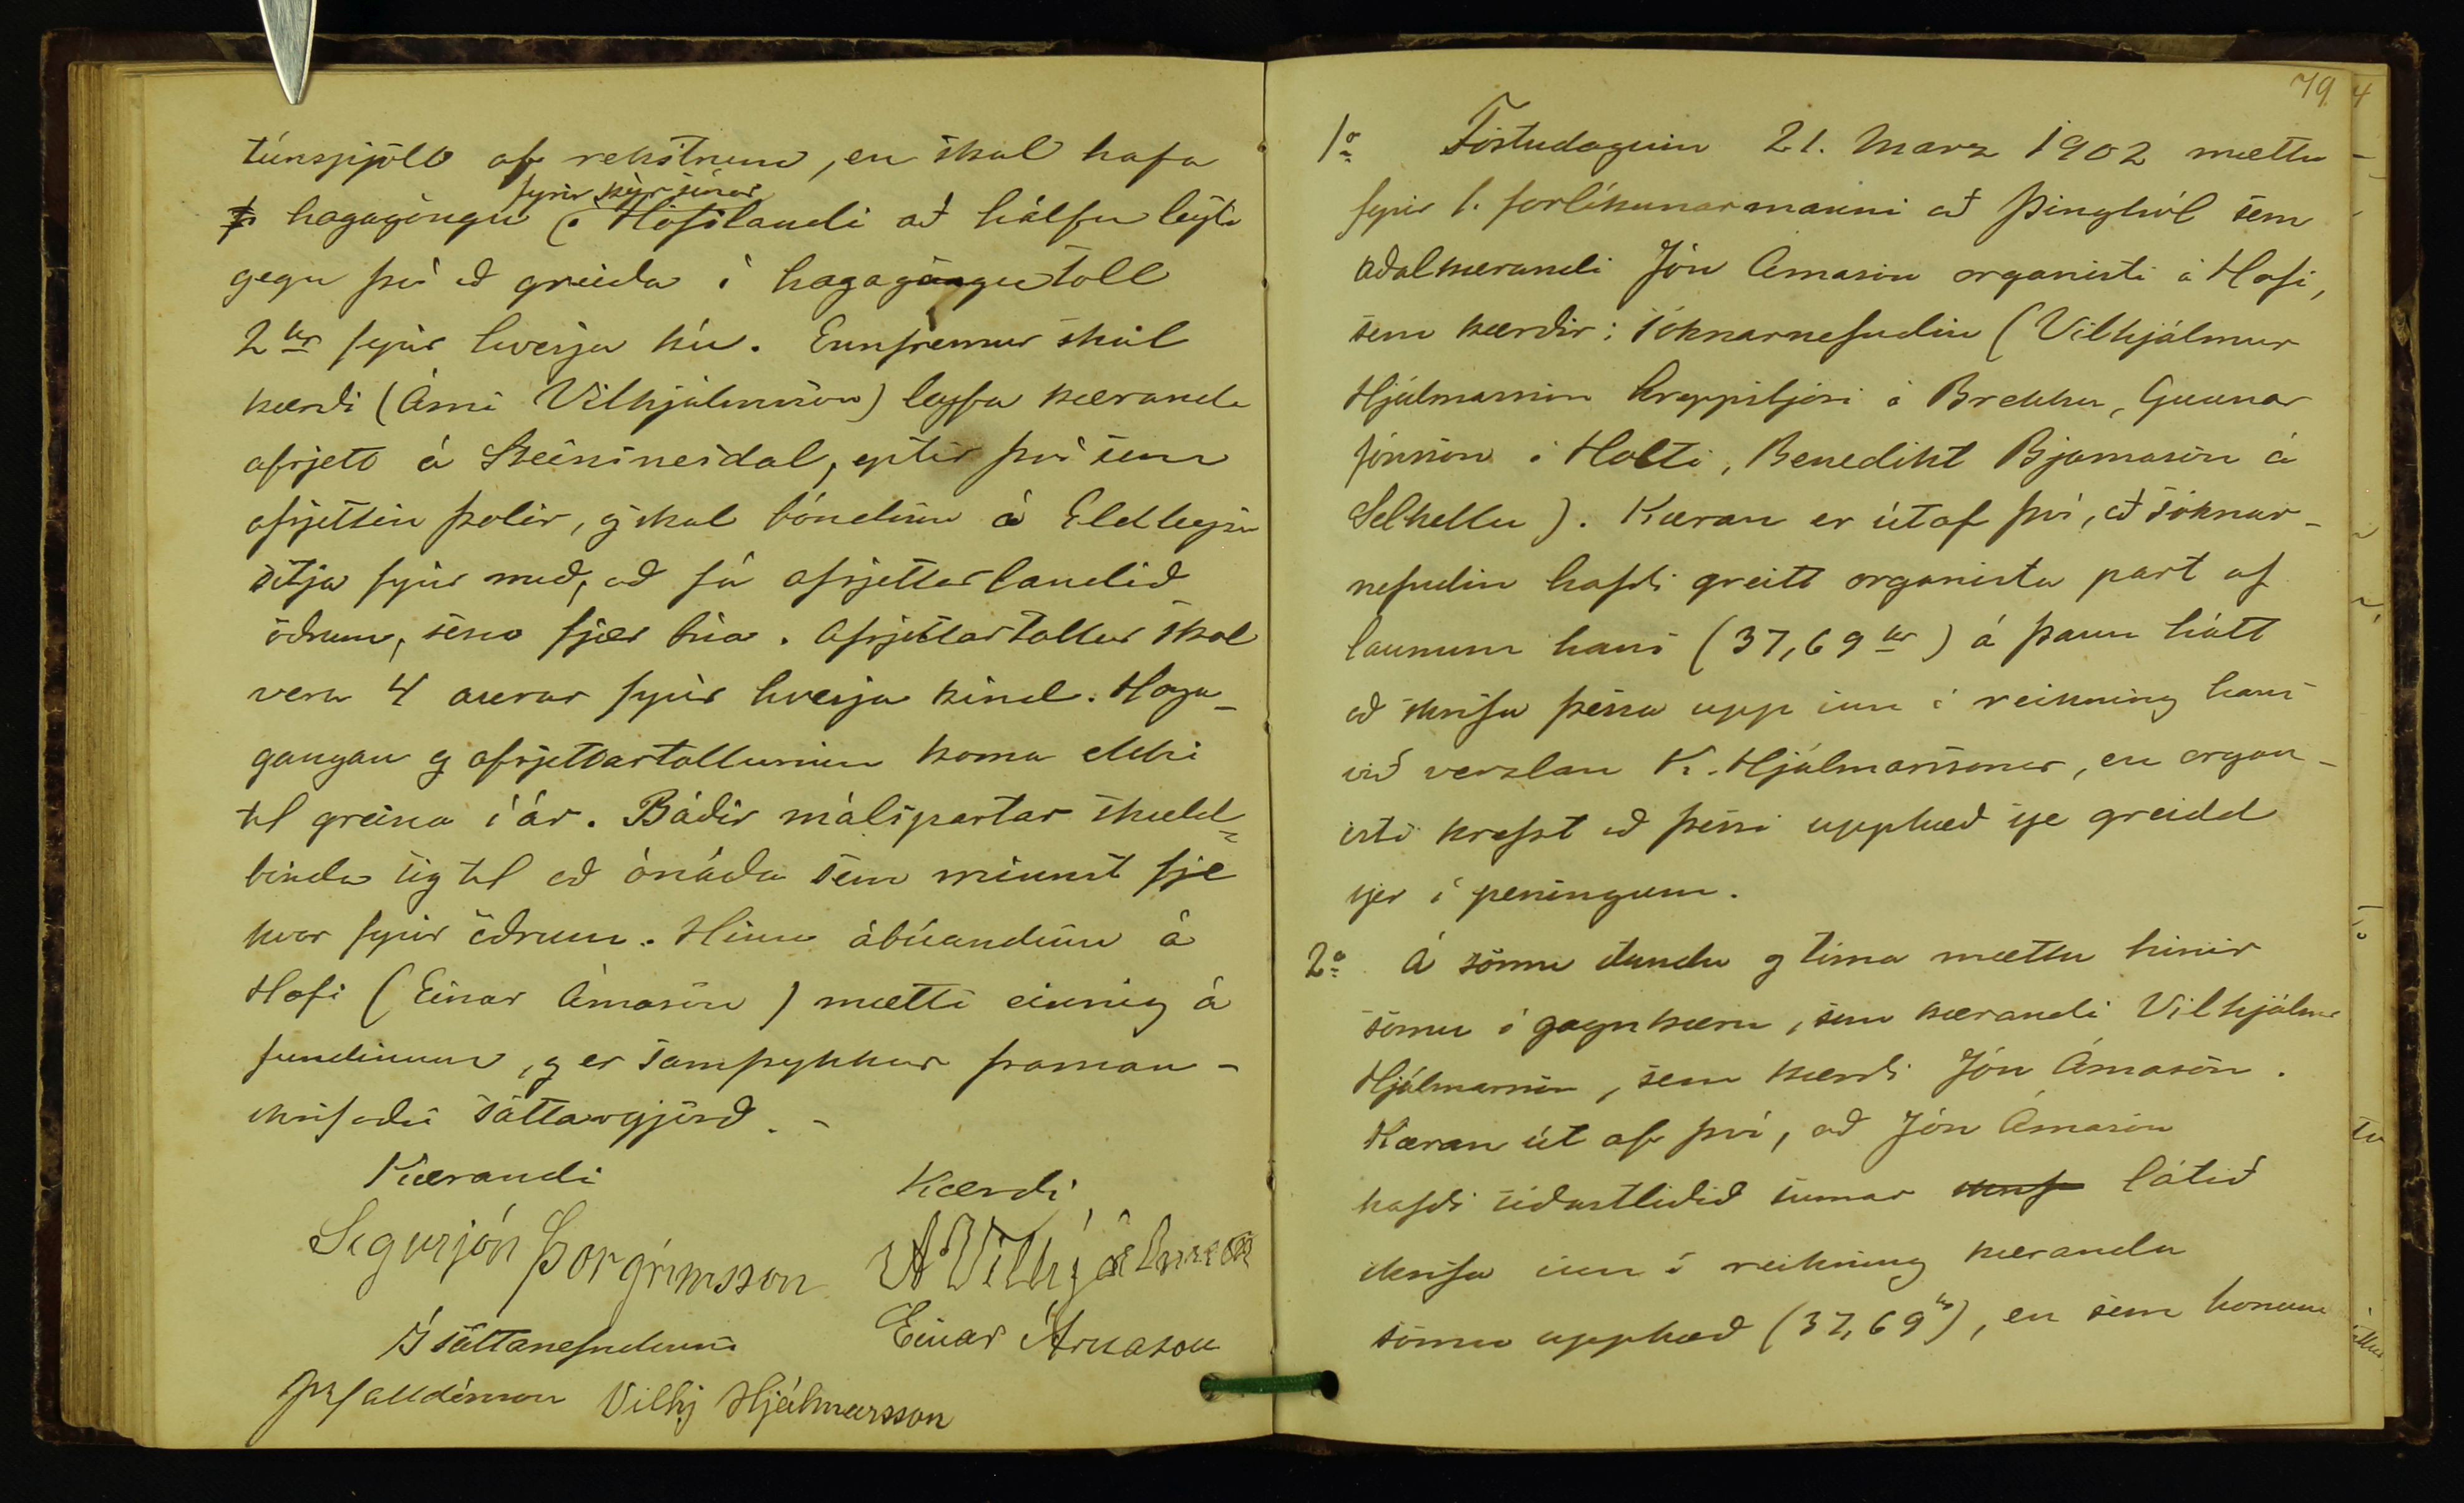 túnspjöll af rekstrum, en skal hafa
fyrir kýr sínar
hagagöngu í Hofslandi að hálfu leyti
gegn því að greiða í hagagöngutoll
2 kr fyrir hverja kú. Ennfremur skal
kærði (Árni Vilhjálmsson) leyfa kæranda
afrjett á Steinsnesdal, eptir því sem
afrjettin þolir, og skal bóndinn á Eldleysu
sitja fyrir með, að fá afrjettarlandið
öðrum, sem fjær búa. Afrjettartollur skal
vera 4 aurar fyrir hverja kind. Haga-
gangan og afrjettartollurinn koma ekki
til greina í ár. Báðir málspartar skuld-
binda sig til að ónáða sem minnst fje
hvor fyrir öðrum. Hinn ábúandinn á
Hofi (Einar Árnason) mætti einnig á
fundinum, og er samþykkur framan-
skrifaðri sáttargjörð. -
Kærandi Kærði
Sigurjón Þorgrímsson A Vilhjálmsson
Í sáttanefndinni Einar Árnason
Vilhj Hjálmarsson
79
1o Föstudaginn 21. Marz 1902 mættu
fyrir 1. forlíkunarmanni að Þinghól sem
aðalkærandi Jón Árnason organisti á Hofi,
sem kærðir: sóknarnefndin (Vilhjálmur
Hjálmarsson hreppstjóri á Brekku, Gunnar
Jónsson í Holti, Benedikt Bjarnason á
Selhellu). Kæran er útaf því, að sóknar-
nefndin hafði greitt organista part af
launum hans (37,69 kr) á þann hátt
að skrifa þessa upp inn í reikning hans
við verzlan K. Hjálmarssonar, en organ-
isti krefst að þessi upphæð sje greidd
sjer í peningum.
2o Á sömu stundu og tíma mættu hinir
sömu í gagnkæru, sem kærandi Vilhjálmur
Hjálmarsson, sem kærði Jón Árnason.
Kæran út af því, að Jón Árnason
hafði síðastliðið sumar skrif látið
skrifa inn í reikning kæranda
sömu upphæð (37,69 kr), en sem honum